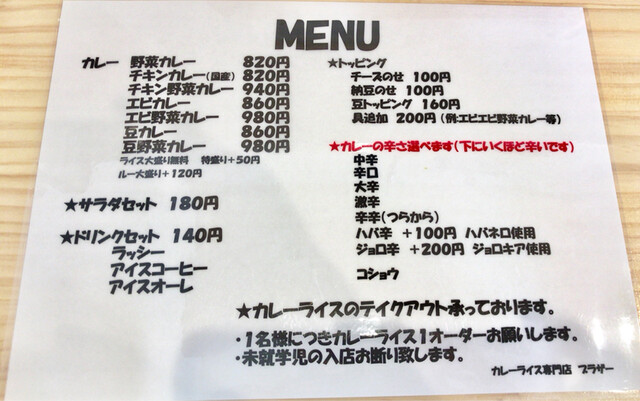 MENU
カレー 野菜カレー 820円
チキンカレー(国産) 820円
チキン野菜カレー 940円
エビカレー 860円
エビ野菜カレー 980円
豆カレー 860円
豆野菜カレー 980円
ライス大盛り無料 特盛り+50円
ルー大盛り+120円
★サラダセット 180円
★ドリンクセット 140円
ラッシー
アイスコーヒー
アイスオーレ
★トッピング
チーズのせ 100円
納豆のせ 100円
豆トッピング 160円
具追加 200円 (例:エビエビ野菜カレー等)
★カレーの辛さ選べます(下にいくほど辛いです)
中辛
辛口
大辛
激辛
辛辛(つらから)
ハバ辛 +100円 ハバネロ使用
ジョロ辛 +200円 ジョロキア使用
コショウ
★カレーライスのテイクアウト承っております。
・1名様につきカレーライス1オーダーお願いします。
・未就学児の入店お断り致します。
カレーライス専門店 ブラザー